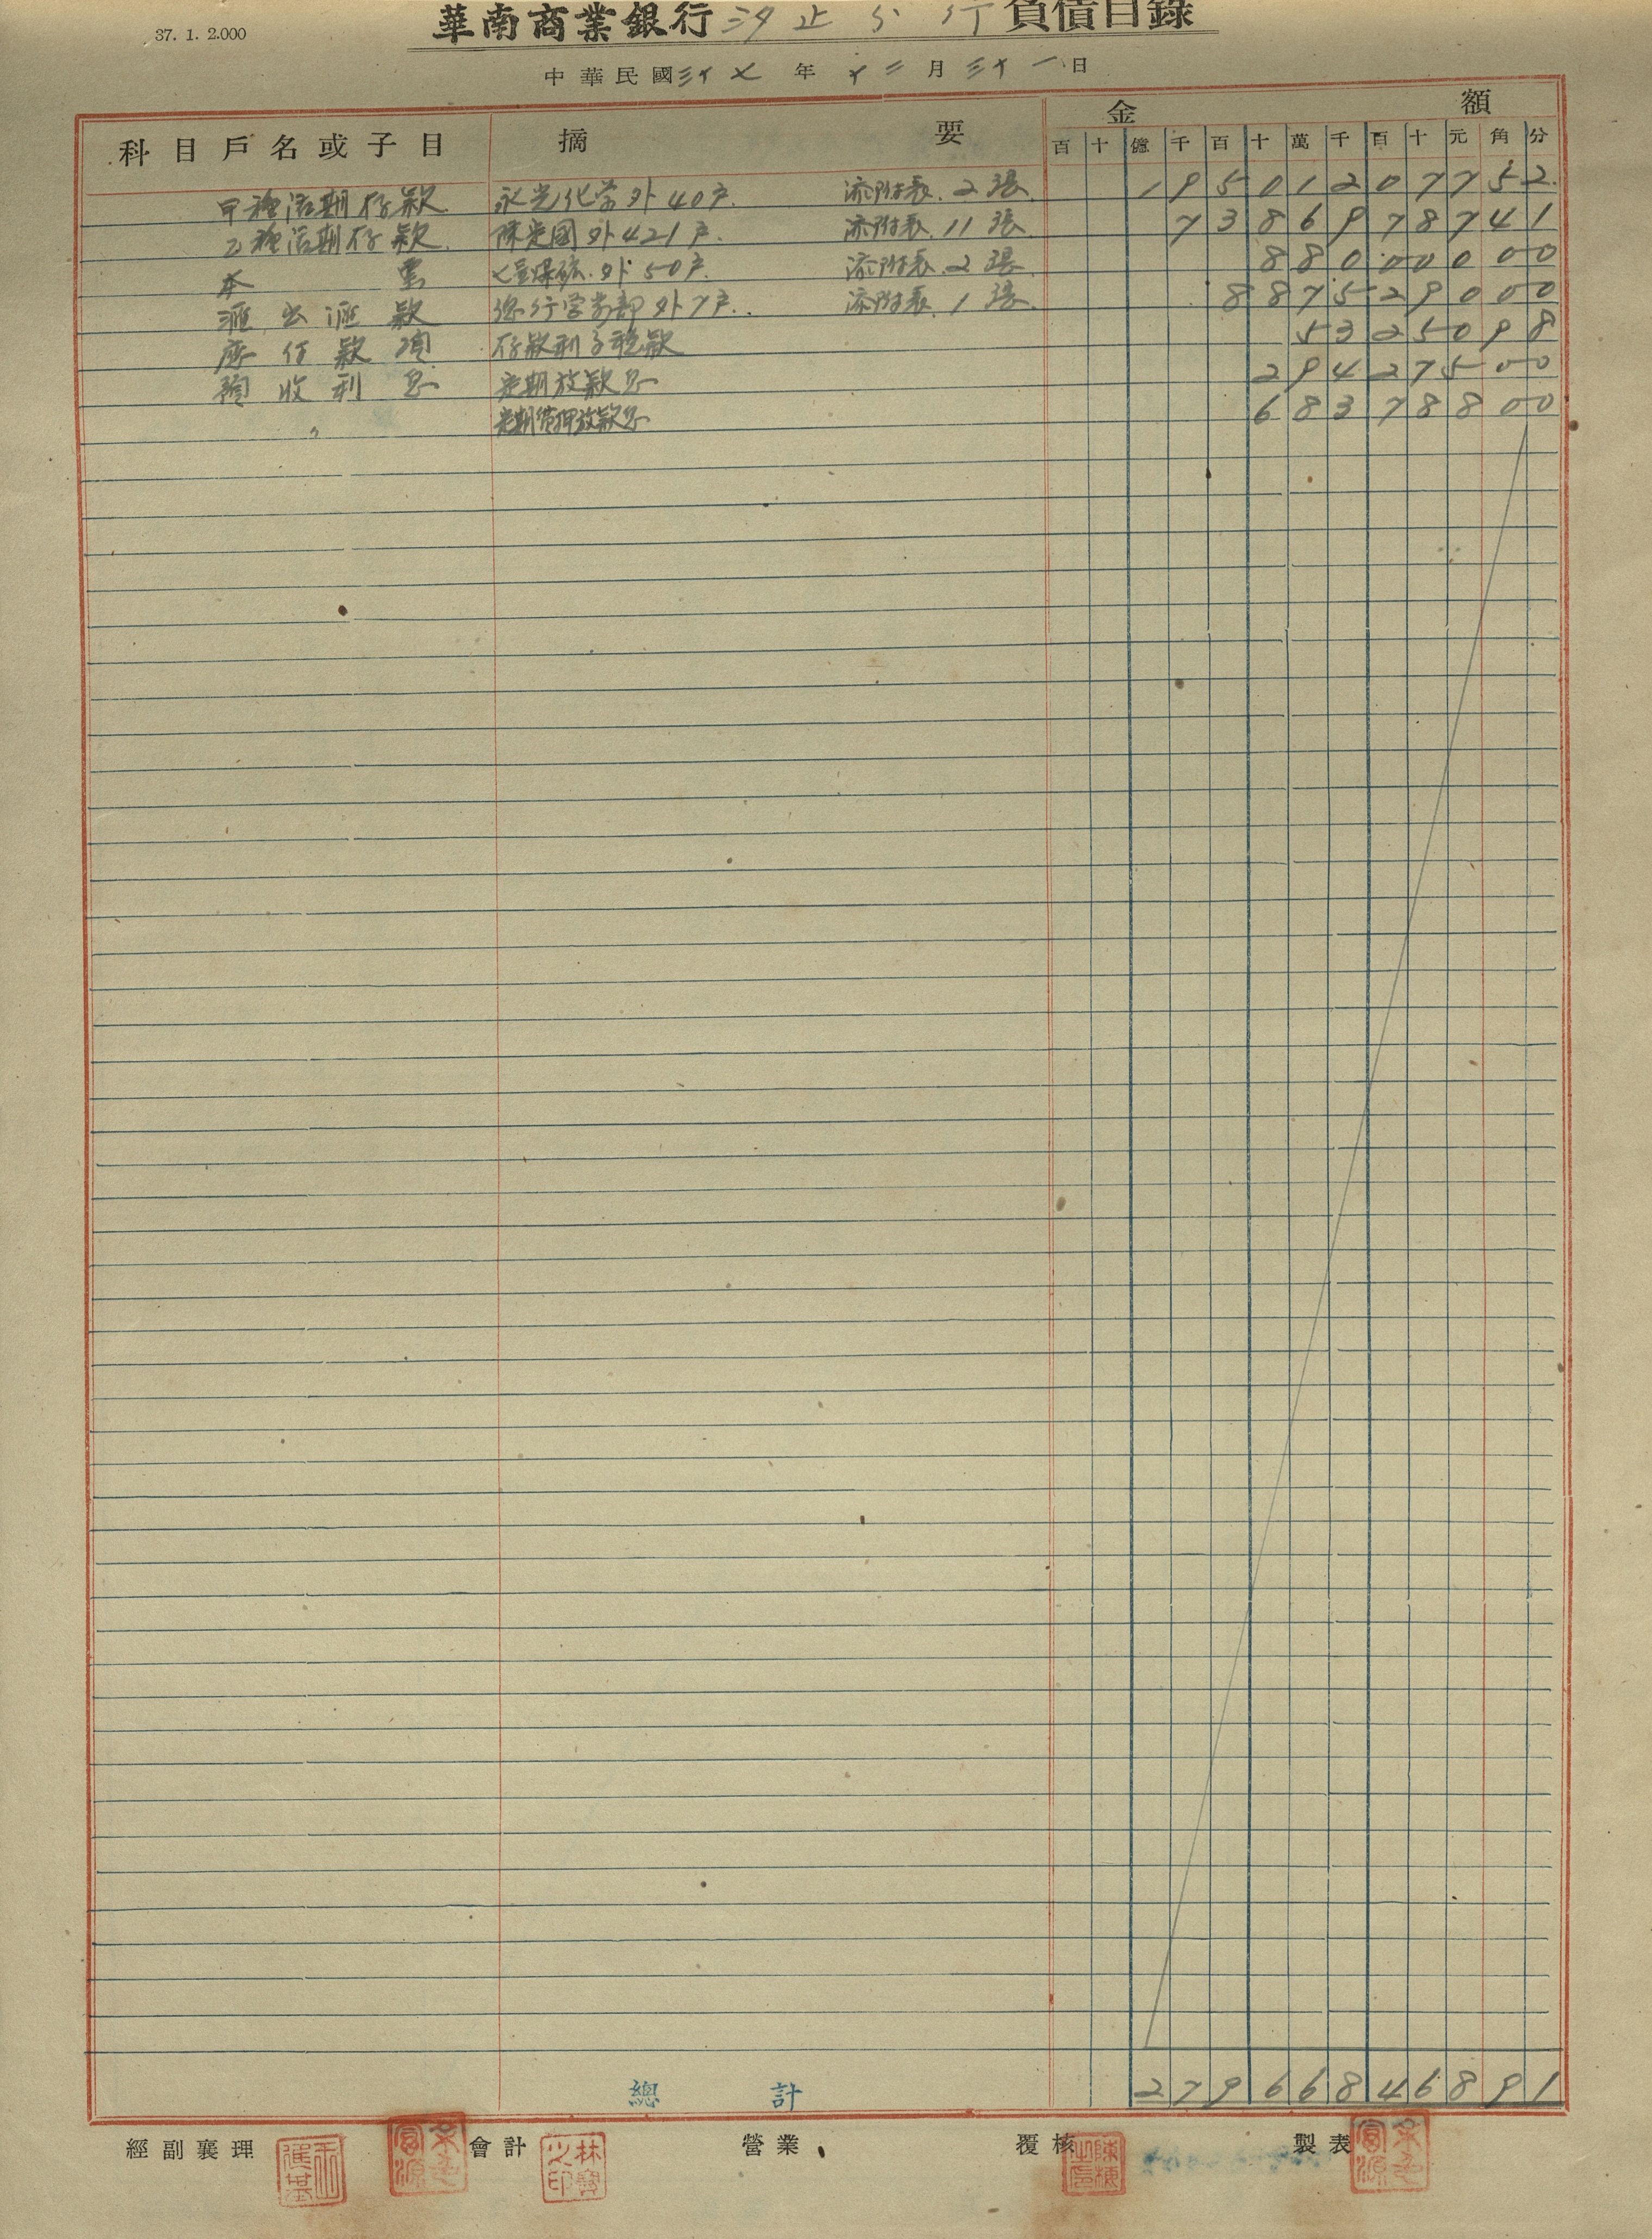 37. 1. 2.000
華南商業銀行汐止分行負債目錄
中華民國三十七年十二月三十一日
科目戶名或子目 摘要 金額
百 十 億 千 百 十 萬 千 百 十 元 角 分
甲種活期存款 永光化学外40户. 添附表.2張. 1 9 5 0 1 2 0 7 7 5 2
乙種活期存款. 陳定國外421户. 添附表.11張. 7 3 8 6 9 7 8 7 4 1
本票 七星煤砿.外50户. 添附表.2張. 8 8 0 0 0 0 0 0
滙出滙款 總行営業部外7户. 添附表.1張. 8 8 7 5 2 9 0 0 0
應付款項 存款利子税款 5 3 2 5 0 9 8
預收利息 定期放款息 2 9 4 2 7 5 0 0
〃 定期質押放款息 6 8 3 7 8 8 0 0
總計 2 7 9 6 6 8 4 6 8 9 1
經副襄理 會計 林寶之印 營業 覆核 製表